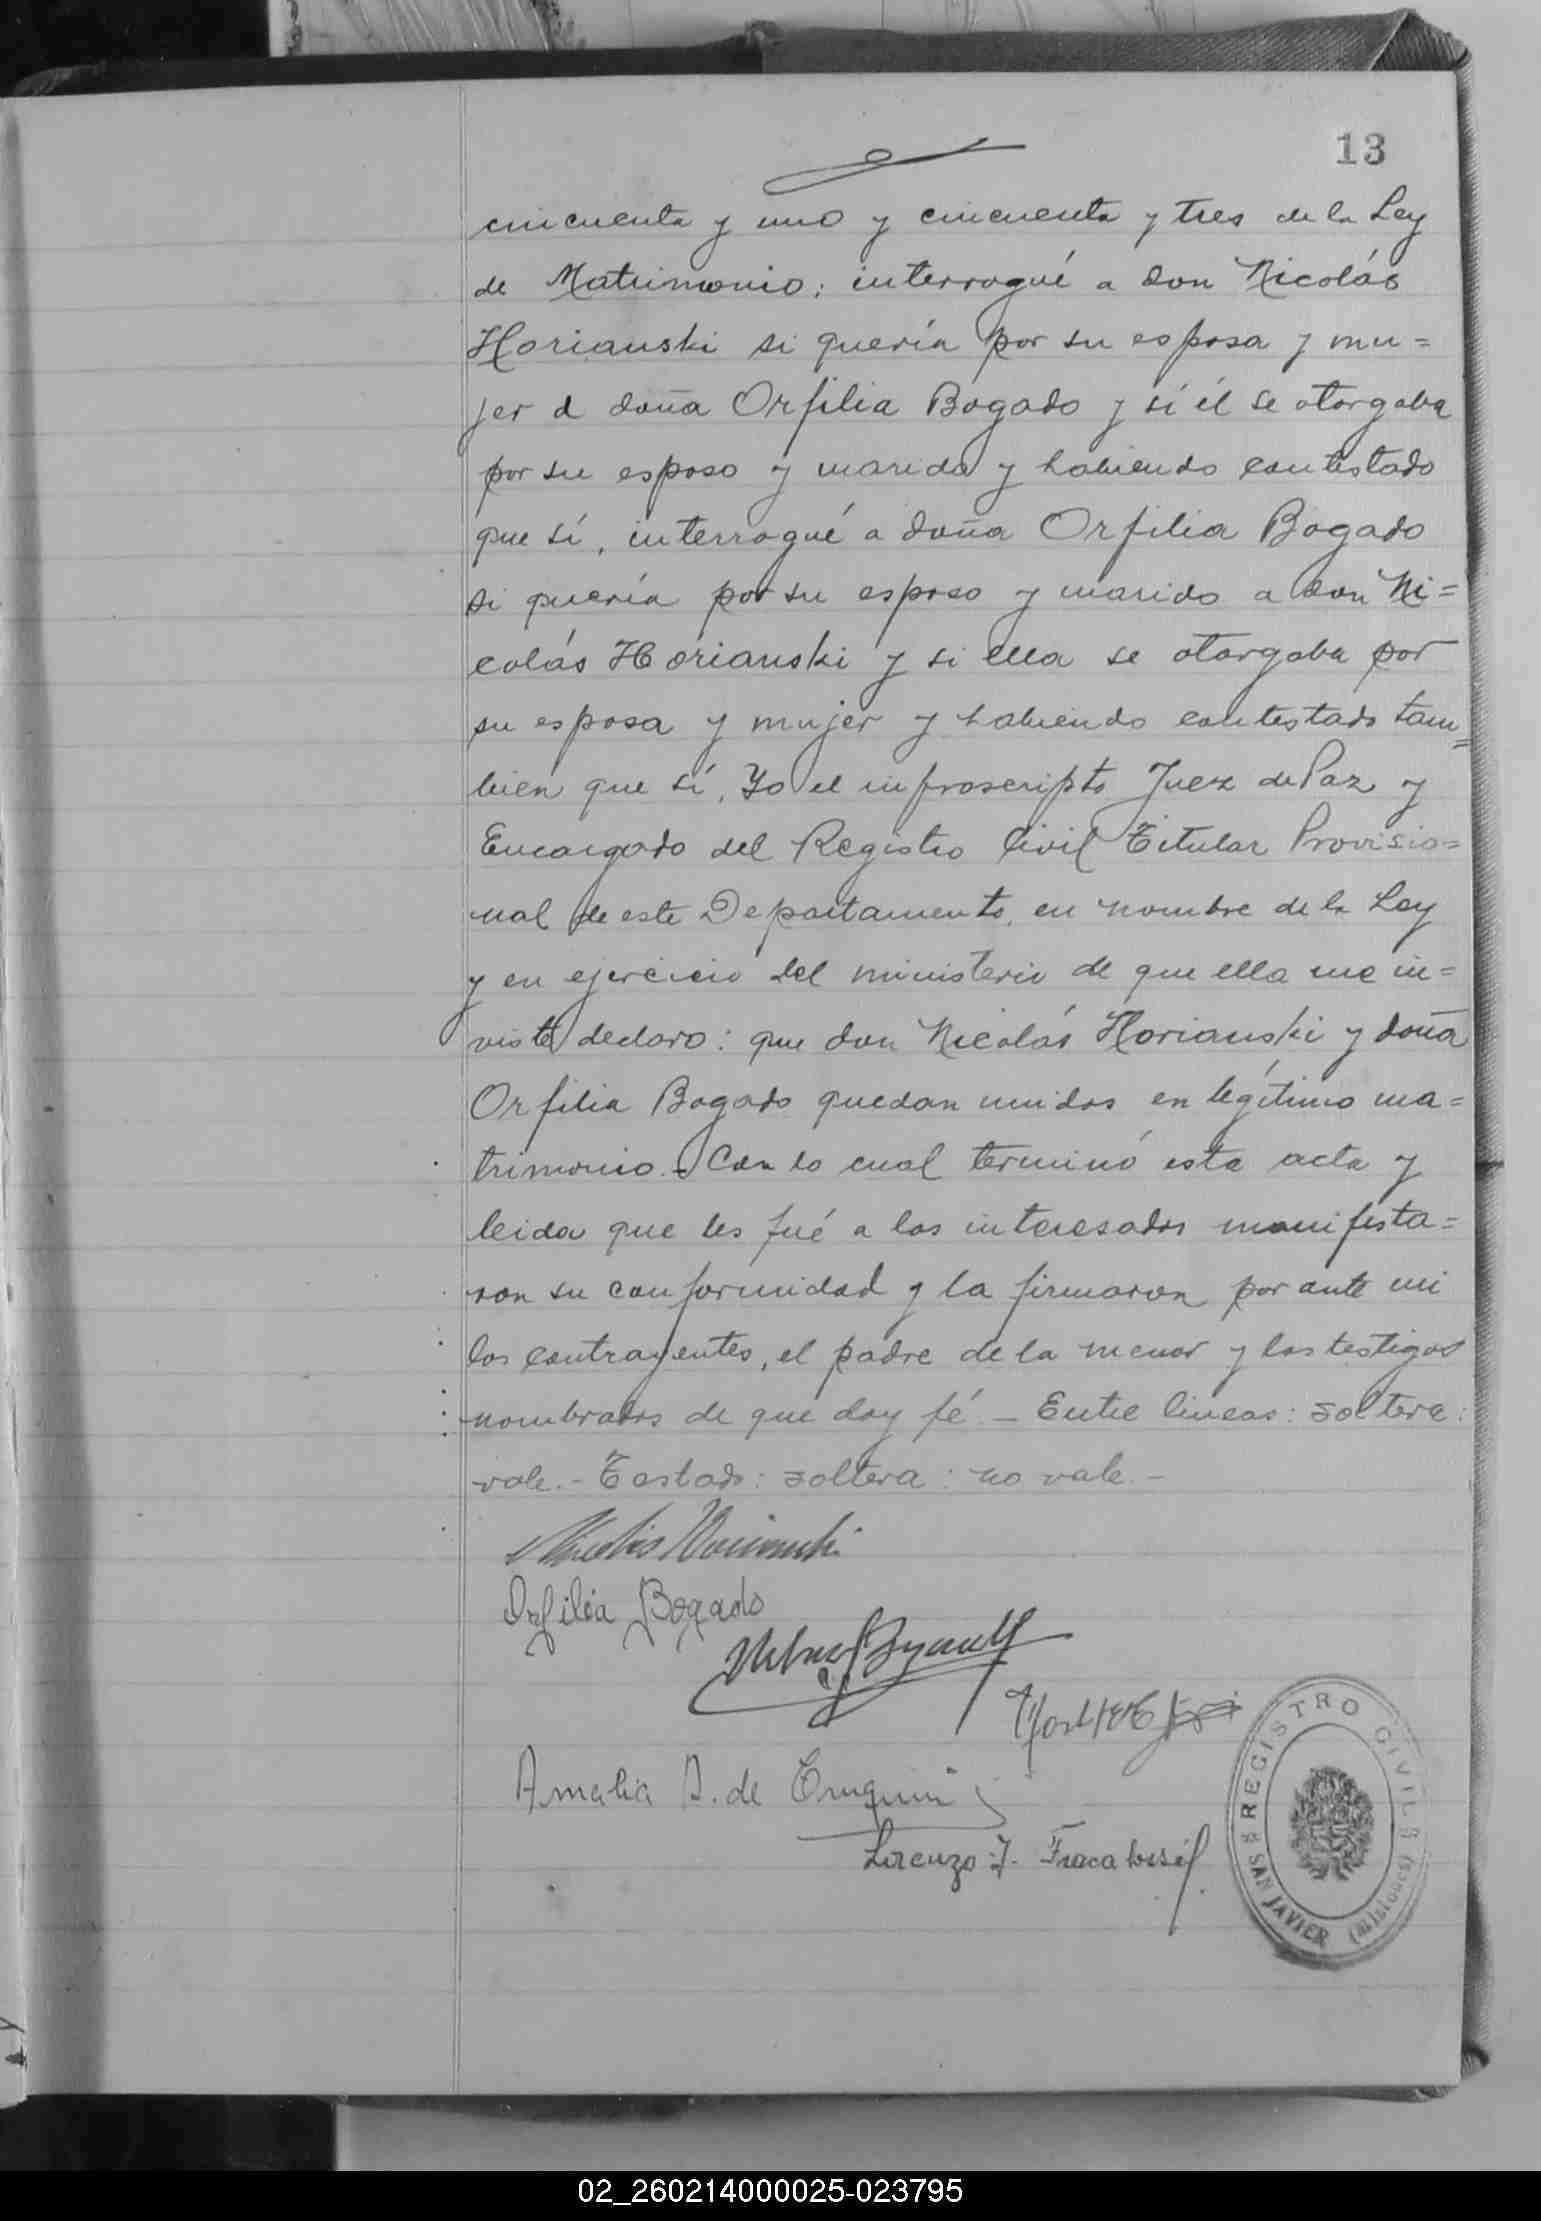 13
cincuenta y uno y cincuenta y tres de la Ley
de Matrimonio; interrogué a don Nicolás
Horianski si quería por su esposa y mu=
jer a doña Orfilia Bogado y sí él se otorgaba
por su esposo y marido y habiendo contestado
que sí, interrogué a doña Orfilia Bogado
si quería por su esposo y marido a don Ni=
colás Horianski y si ella se otorgaba por
su esposa y mujer y habiendo contestado tam=
bien que sí, Yo el infrascripto Juez de Paz y
Encargado del Registro Civil Titular Provisio=
nal de este Departamento, en nombre de la Ley
y en ejercicio del ministerio de que ella me in=
viste declaro: que don Nicolás Horianski y doña
Orfilia Bogado quedan unidos en legítimo ma=
trimonio. Con lo cual terminó esta acta y
leida que les fué a los interesados manifesta=
ron su conformidad y la firmaron por ante mi
los contrayentes, el padre de la menor y los testigos
nombrados de que doy fé. — Entre lineas: soltera:
vale. - Testado: soltera: no vale. -
Nicolás Horianski
Orfilia Bogado
Amalia D. de
Lorenzo J.
REGISTRO CIVIL
SAN JAVIER (Misiones)
02_260214000025-023795